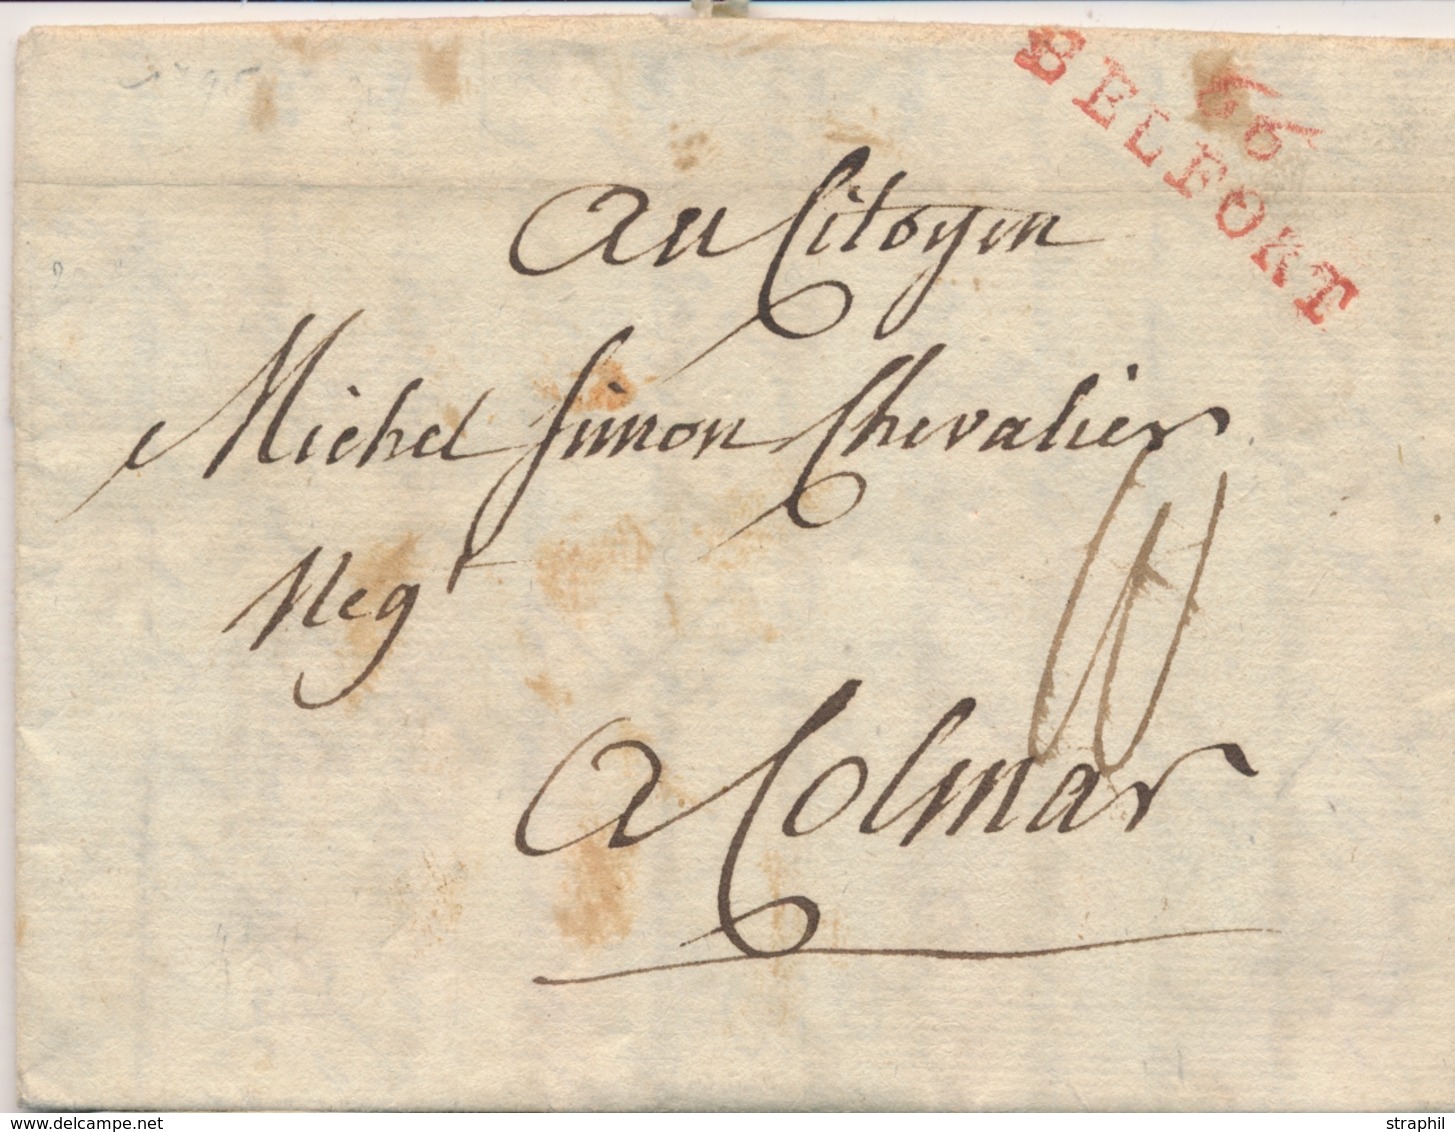 1795
66
BELFORT
Au Citoyen
Michel Simon Chevalier
Neg^t
A Colmar
www.delcampe.net
straphil